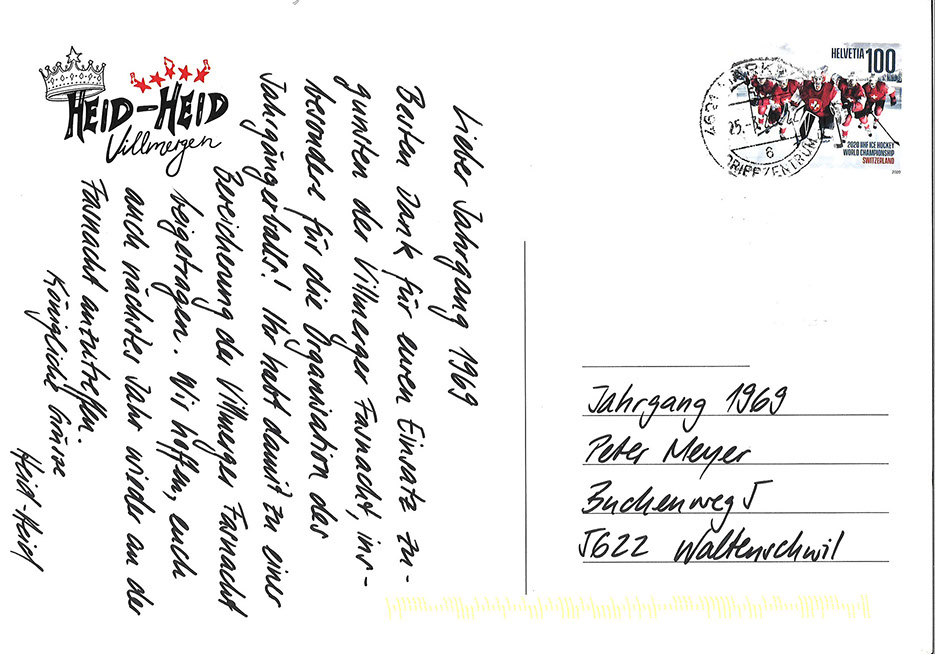 HEID-HEID
Villmergen
Lieber Jahrgang 1969
Besten Dank für euren Einsatz zu-
gunsten der Villmerger Fasnacht, ins-
besondere für die Organisation des
Jahrgängerballs! Ihr habt damit zu einer
Bereicherung der Villmerger Fasnacht
beigetragen. Wir hoffen, euch
auch nächstes Jahr wieder an der
Fasnacht anzutreffen.
Königliche Grüsse
Heid-Heid
HELVETIA 100
2020 IIHF ICE HOCKEY
WORLD CHAMPIONSHIP
SWITZERLAND
2020
25.
6
BRIEFZENTRUM
Jahrgang 1969
Peter Meyer
Buchenweg 5
5622 Waltenschwil